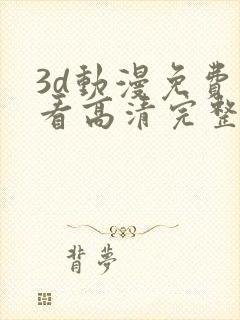 3d動漫免費
看高清完整
背夢